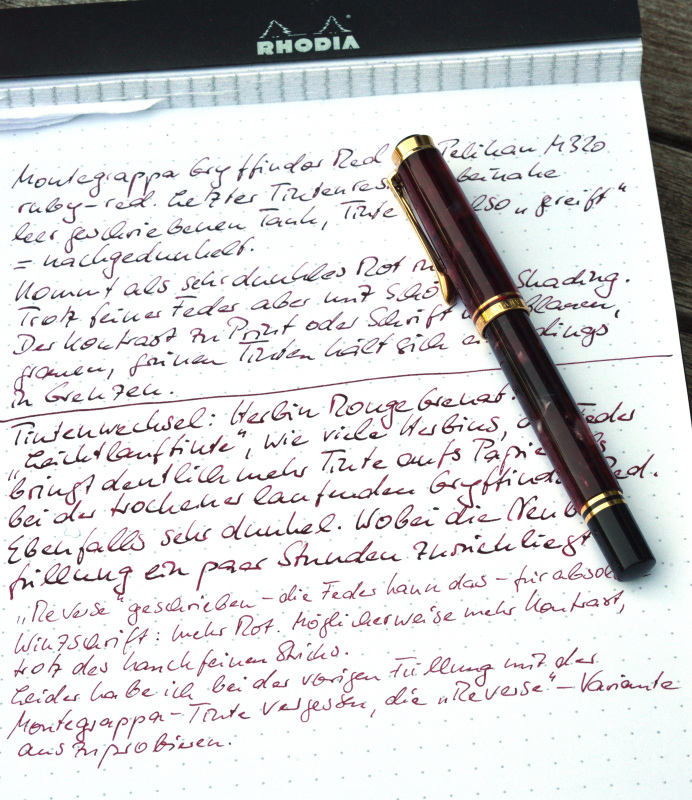 RHODIA
Montegrappa Gryffindor Red Pelikan M320
ruby-red. Letzter Tintenres beinahe
leer geschriebenen Tank, Tinte also „greift“
= nachgedunkelt.
Kommt als sehr dunkles Rot Shading.
Trotz feiner Feder aber mit schö
Der Kontrast zu Print oder Schrift blauen,
grauen, grünen Tinten hält sich dings
in Grenzen.
Tintenwechsel: Herbin Rouge Grenat.
„Leichtlauftinte“, wie viele Herbins, Feder
bringt deutlich mehr Tinte aufs Papie
bei der trockener laufenden Gryffind Red.
Ebenfalls sehr dunkel. Wobei die Neub
füllung ein paar Stunden zurückliegt
„Reverse“ geschrieben – die Feder kann das – für absol
Winzschrift: mehr Rot. Möglicherweise mehr Kontrast,
trotz des hauchfeinen Strichs.
Leider habe ich bei der vorigen Füllung mit der
Montegrappa-Tinte vergessen, die „Reverse“-Variante
auszuprobieren.